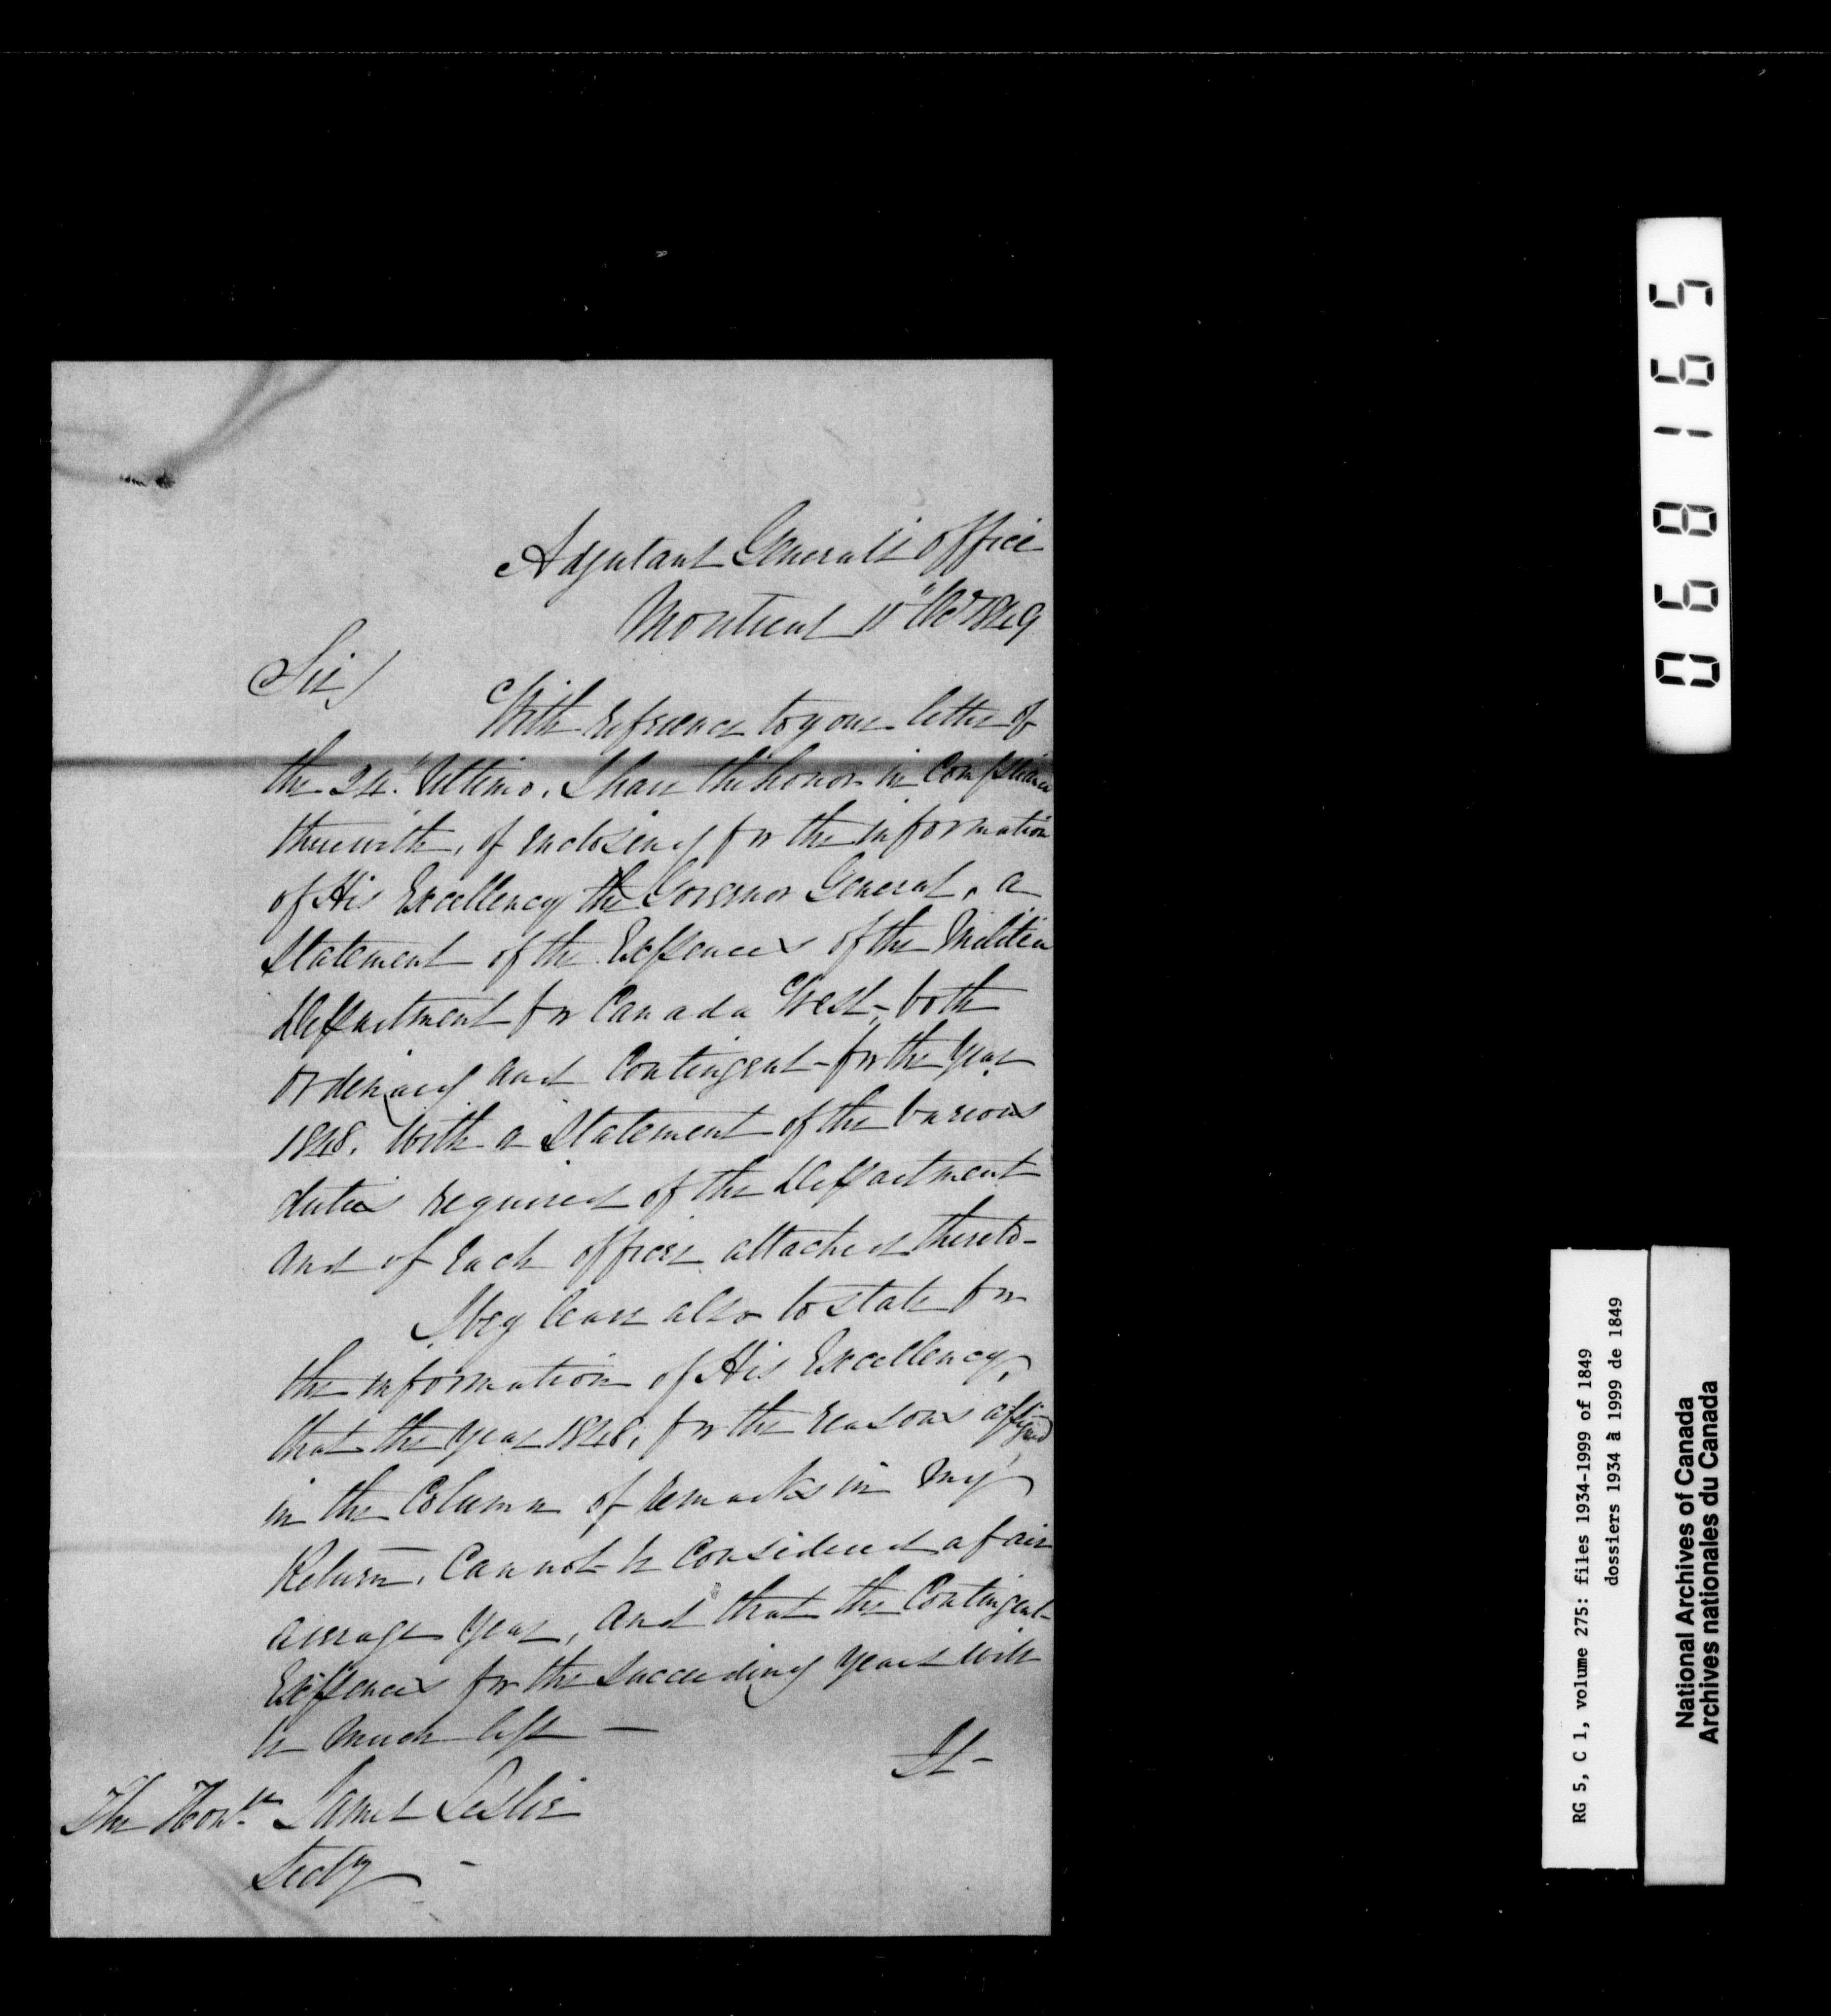 Adjutant General's Office
Montreal 11th 1849
Sir/
With reference to your letter of
the 24th Ultimo, I have the honor in Compliance
therewith, of enclosing for the information
of His Excellency the Governor General, a
Statement of the Expences of the Militia
Department for Canada West, both
Ordinary and Contingent - for the Year
1848. With a Statement of the various
duties required of the Department
And of Each officer attached thereto -
I beg leave also to state for
the information of His Excellency,
that the Year 1848, for the reasons assigned
in the Column of remarks in My
Return, Cannot be Considered a fair
average Year, And that the Contingent
Expences for the succeeding Years will
be much less —
It -
The Honble James Leslie
Secty -
068165
RG 5, C 1, volume 275: files 1934-1999 of 1849
dossiers 1934 à 1999 de 1849
National Archives of Canada
Archives nationales du Canada